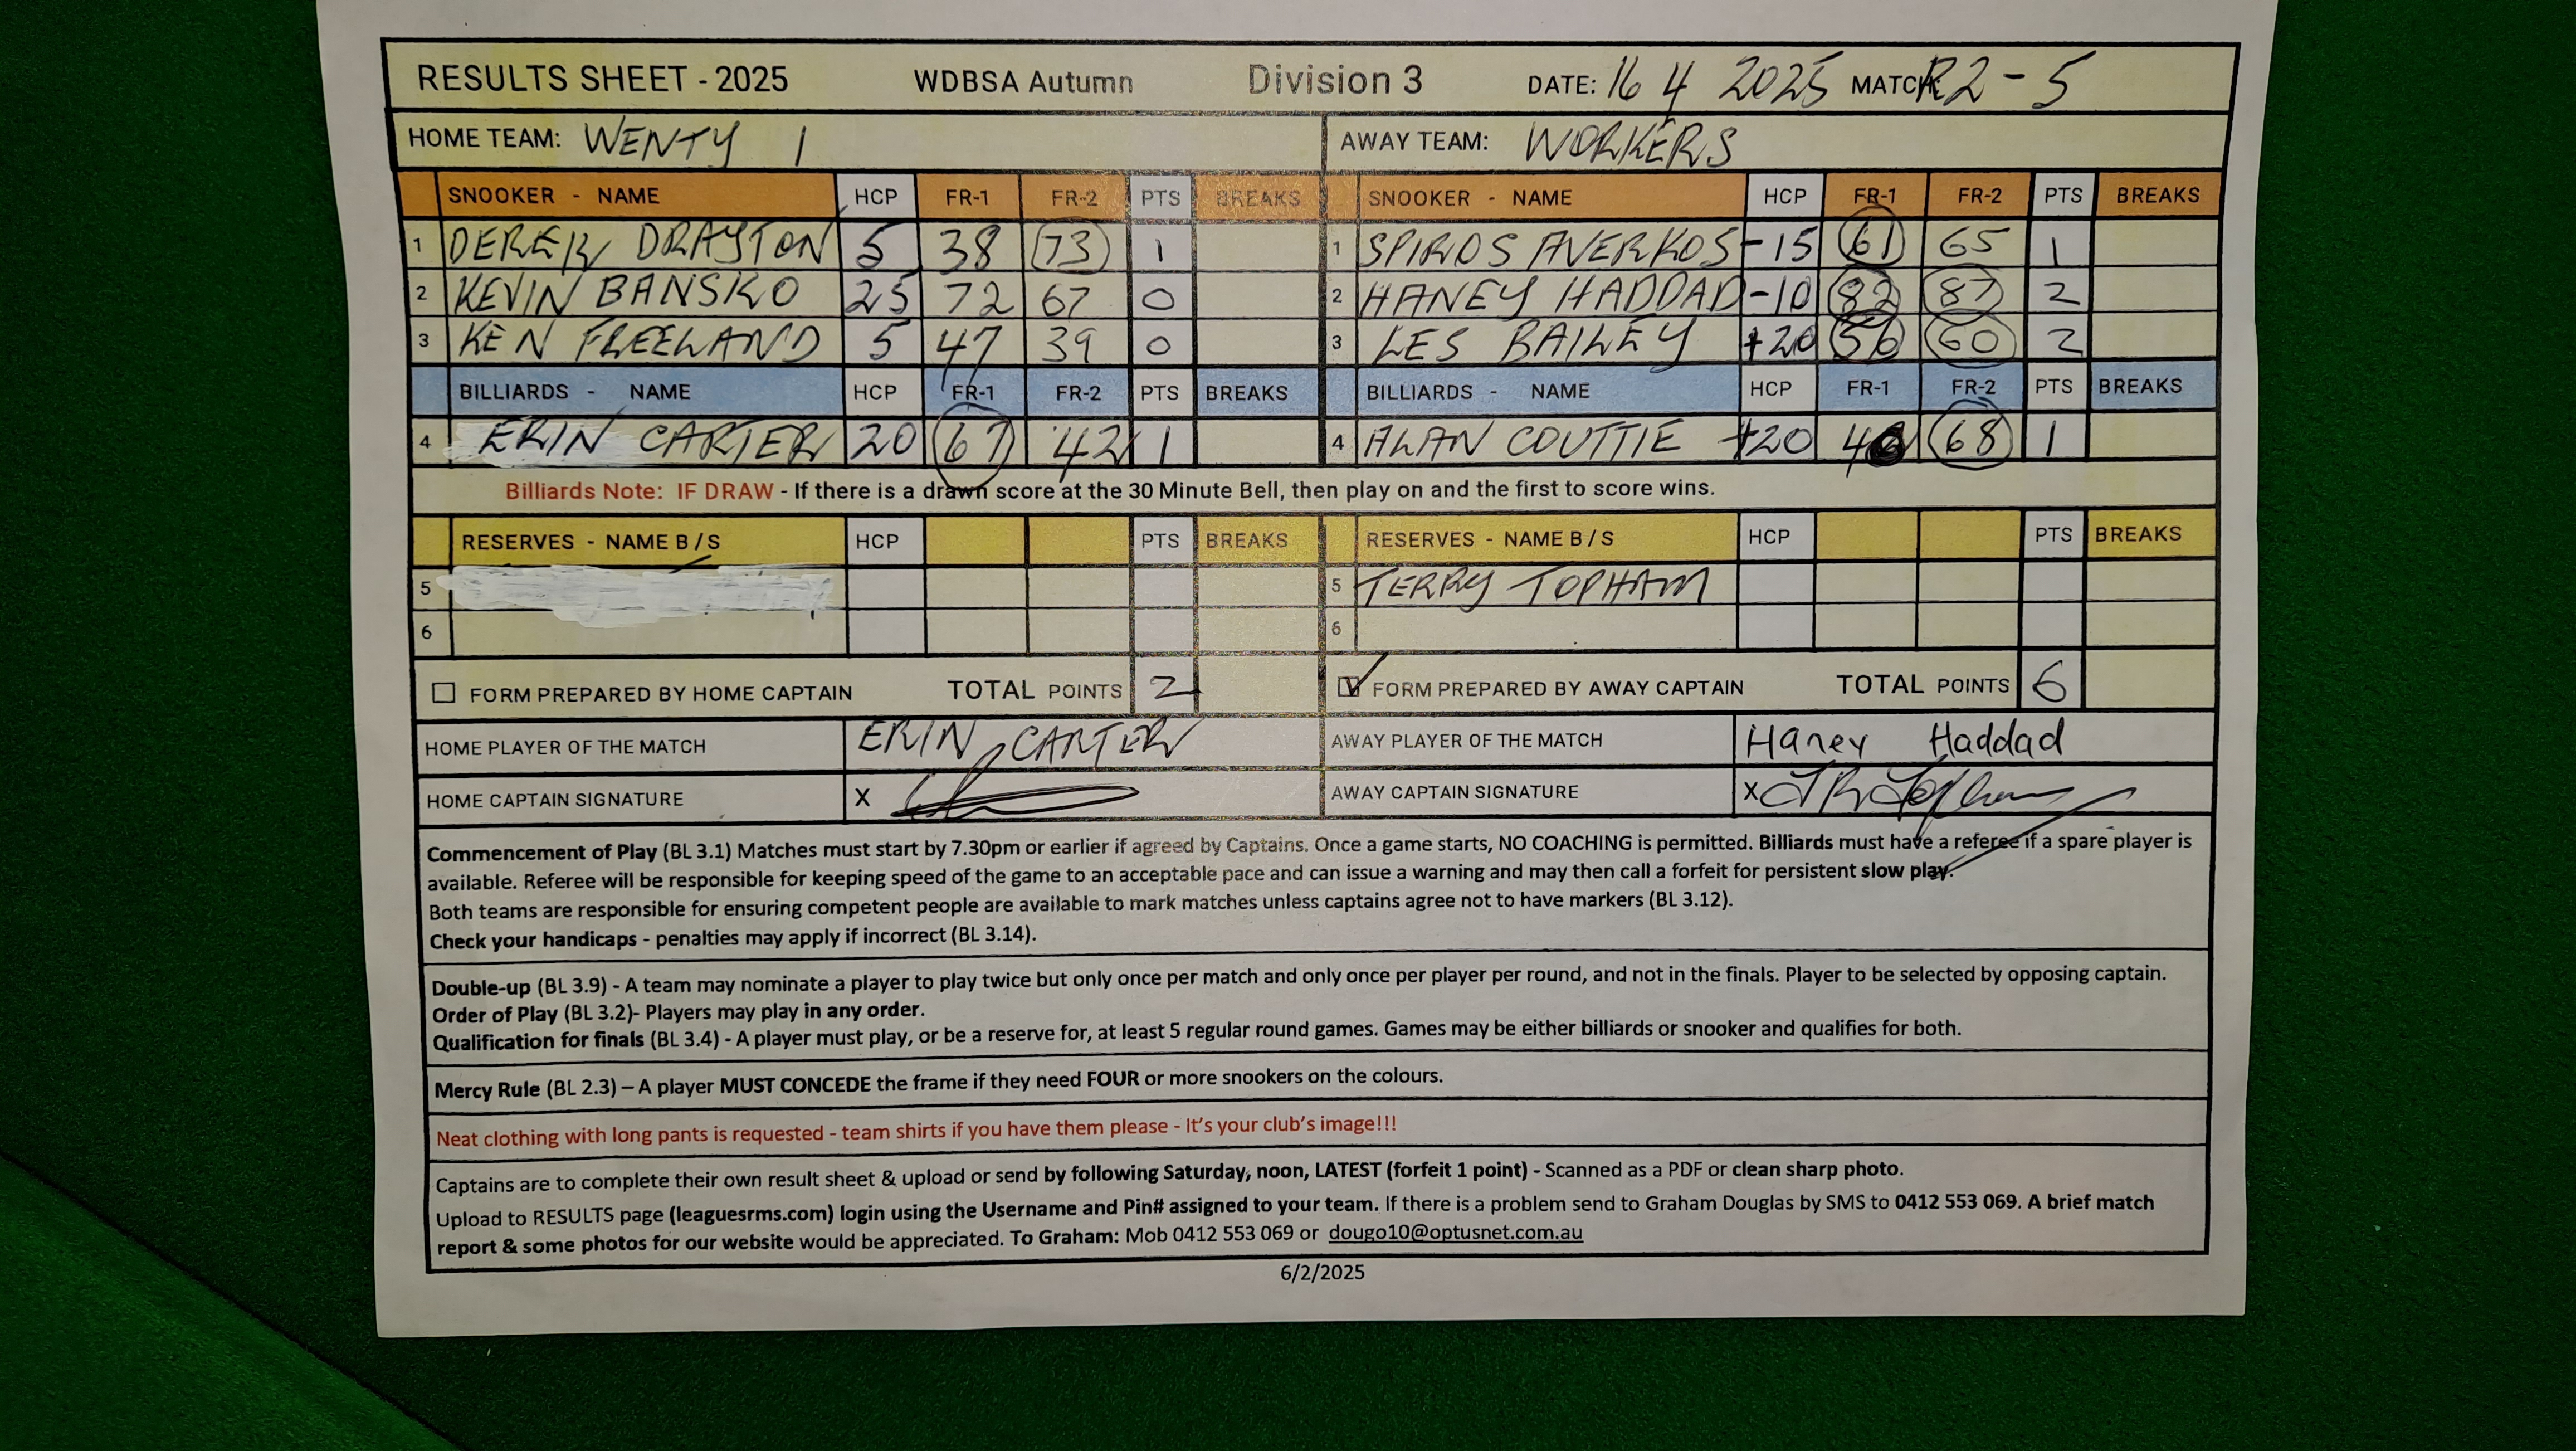 RESULTS SHEET - 2025 WDBSA Autumn Division 3 DATE: 16 4 2025 MATCH: R2-5
HOME TEAM: WENTY 1 AWAY TEAM: WORKERS
SNOOKER - NAME HCP FR-1 FR-2 PTS BREAKS SNOOKER - NAME HCP FR-1 FR-2 PTS BREAKS
1 DEREK DRAYTON 5 38 73 1 1 SPIROS AVERKOS -15 61 65 1
2 KEVIN BANSKO 25 72 67 0 2 HANEY HADDAD -10 82 87 2
3 KEN FREELAND 5 47 39 0 3 LES BAILEY +20 56 60 2
BILLIARDS - NAME HCP FR-1 FR-2 PTS BREAKS BILLIARDS - NAME HCP FR-1 FR-2 PTS BREAKS
4 ERIN CARTER 20 67 42 1 4 ALAN COUTTIE +20 68 1
Billiards Note: IF DRAW - If there is a drawn score at the 30 Minute Bell, then play on and the first to score wins.
RESERVES - NAME B / S HCP PTS BREAKS RESERVES - NAME B / S HCP PTS BREAKS
5 5 TERRY TOPHAM
6 6
FORM PREPARED BY HOME CAPTAIN TOTAL POINTS 2 FORM PREPARED BY AWAY CAPTAIN TOTAL POINTS 6
HOME PLAYER OF THE MATCH ERIN CARTER AWAY PLAYER OF THE MATCH Haney Haddad
HOME CAPTAIN SIGNATURE X AWAY CAPTAIN SIGNATURE X
Commencement of Play (BL 3.1) Matches must start by 7.30pm or earlier if agreed by Captains. Once a game starts, NO COACHING is permitted. Billiards must have a referee if a spare player is
available. Referee will be responsible for keeping speed of the game to an acceptable pace and can issue a warning and may then call a forfeit for persistent slow play.
Both teams are responsible for ensuring competent people are available to mark matches unless captains agree not to have markers (BL 3.12).
Check your handicaps - penalties may apply if incorrect (BL 3.14).
Double-up (BL 3.9) - A team may nominate a player to play twice but only once per match and only once per player per round, and not in the finals. Player to be selected by opposing captain.
Order of Play (BL 3.2)- Players may play in any order.
Qualification for finals (BL 3.4) - A player must play, or be a reserve for, at least 5 regular round games. Games may be either billiards or snooker and qualifies for both.
Mercy Rule (BL 2.3) – A player MUST CONCEDE the frame if they need FOUR or more snookers on the colours.
Neat clothing with long pants is requested - team shirts if you have them please - It's your club's image!!!
Captains are to complete their own result sheet & upload or send by following Saturday, noon, LATEST (forfeit 1 point) - Scanned as a PDF or clean sharp photo.
Upload to RESULTS page (leaguesrms.com) login using the Username and Pin# assigned to your team. If there is a problem send to Graham Douglas by SMS to 0412 553 069. A brief match
report & some photos for our website would be appreciated. To Graham: Mob 0412 553 069 or dougo10@optusnet.com.au
6/2/2025